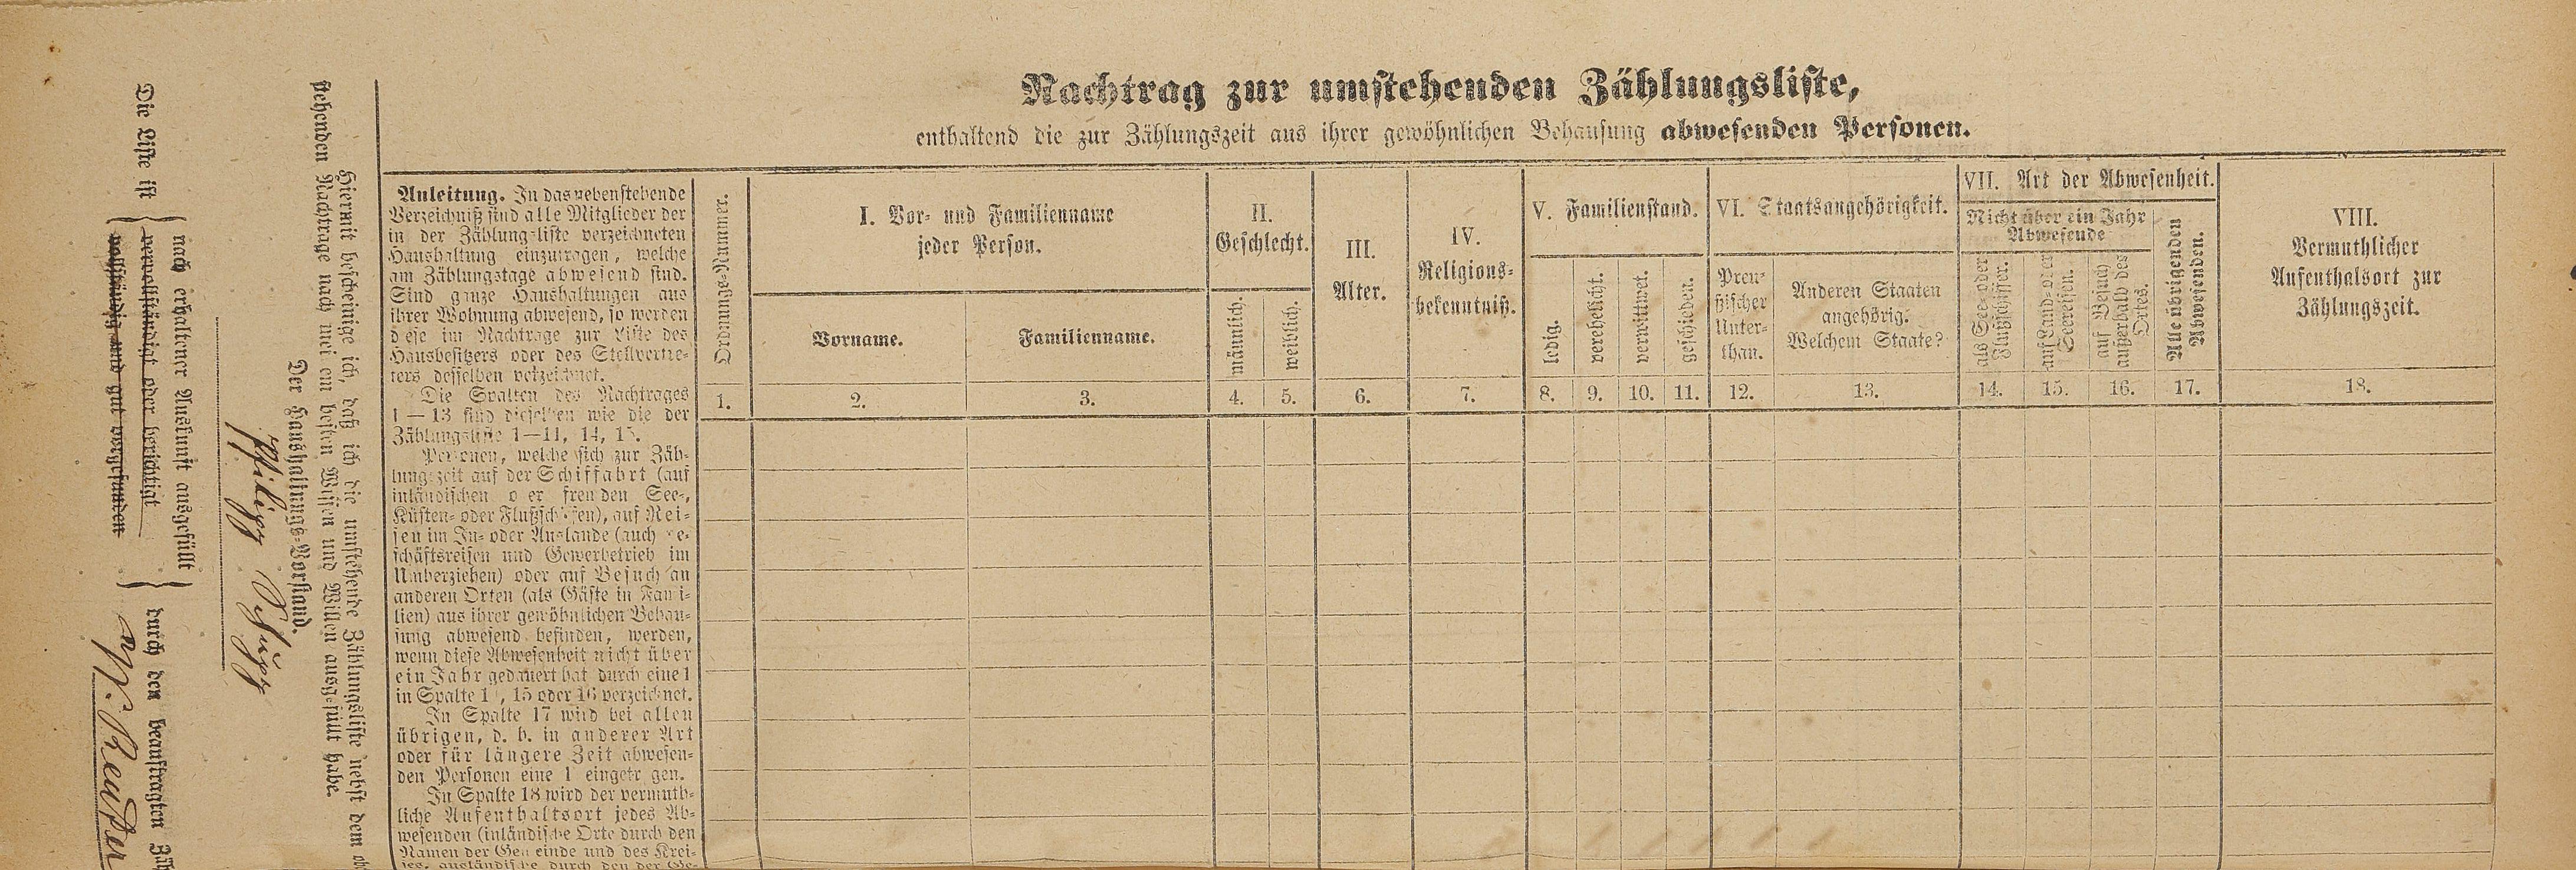 Nachtrag zur umstehenden Zählungsliste,
enthaltend die zur Zählungszeit aus ihrer gewöhnlichen Behausung abwesenden Personen.
Anleitung. In das nebenstehende
Verzeichniß sind alle Mitglieder der
in der Zählungsliste verzeichneten
Haushaltung einzutragen, welche
am Zählungstage abwesend sind.
Sind ganze Haushaltungen aus
ihrer Wohnung abwesend, so werden
diese im Nachtrage zur Liste des
Hausbesitzers oder des Stellvertre-
ters desselben verzeichnet.
Die Spalten des Nachtrages
1—13 sind dieselben wie die der
Zählungsliste 1—11, 14, 15.
Personen, welche sich zur Zäh-
lungszeit auf der Schiffahrt (auf
inländischen oder fremden See-,
Küsten- oder Flußschiffen), auf Rei-
sen im In- oder Auslande (auch Ge-
schäftsreisen und Gewerbetrieb im
Umherziehen) oder auf Besuch an
anderen Orten (als Gäste in Fami-
lien) aus ihrer gewöhnlichen Behau-
sung abwesend befinden, werden,
wenn diese Abwesenheit nicht über
ein Jahr gedauert hat durch eine 1
in Spalte 14, 15 oder 16 verzeichnet.
In Spalte 17 wird bei allen
übrigen, d. h. in anderer Art
oder für längere Zeit abwesen-
den Personen eine 1 eingetragen.
In Spalte 18 wird der vermuth-
liche Aufenthaltsort jedes Ab-
wesenden (inländische Orte durch den
Namen der Gemeinde und des Krei-
ses, ausländische durch den der Ge-
Ordnungs-Nummer.
I. Vor- und Familienname
jeder Person.
Vorname.
Familienname.
II.
Geschlecht.
männlich.
weiblich.
III.
Alter.
IV.
Religions-
bekenntniß.
V. Familienstand.
ledig.
verehelicht.
verwittwet.
geschieden.
VI. Staatsangehörigkeit.
Preu-
ßischer
Unter-
than.
Anderen Staaten
angehörig.
Welchem Staate?
VII. Art der Abwesenheit.
Nicht über ein Jahr
Abwesende
als See- oder
Flußschiffer.
auf Land- oder
Seereisen.
auf Besuch
außerhalb des
Ortes.
Alle übrigen
Abwesenden.
VIII.
Vermuthlicher
Aufenthalsort zur
Zählungszeit.
1. 2. 3. 4. 5. 6. 7. 8. 9. 10. 11. 12. 13. 14. 15. 16. 17. 18.
Hiermit bescheinige ich, daß ich die umstehende Zählungsliste nebst dem ob
stehenden Nachtrage nach meinem besten Wissen und Willen ausgefüllt habe.
Der Haushaltungs-Vorstand.
Philipp
nach erhaltener Auskunft ausgefüllt
Die Liste ist vervollständigt oder berichtigt durch den beauftragten Zäh
vollständig und gut vorgefunden
Reuter